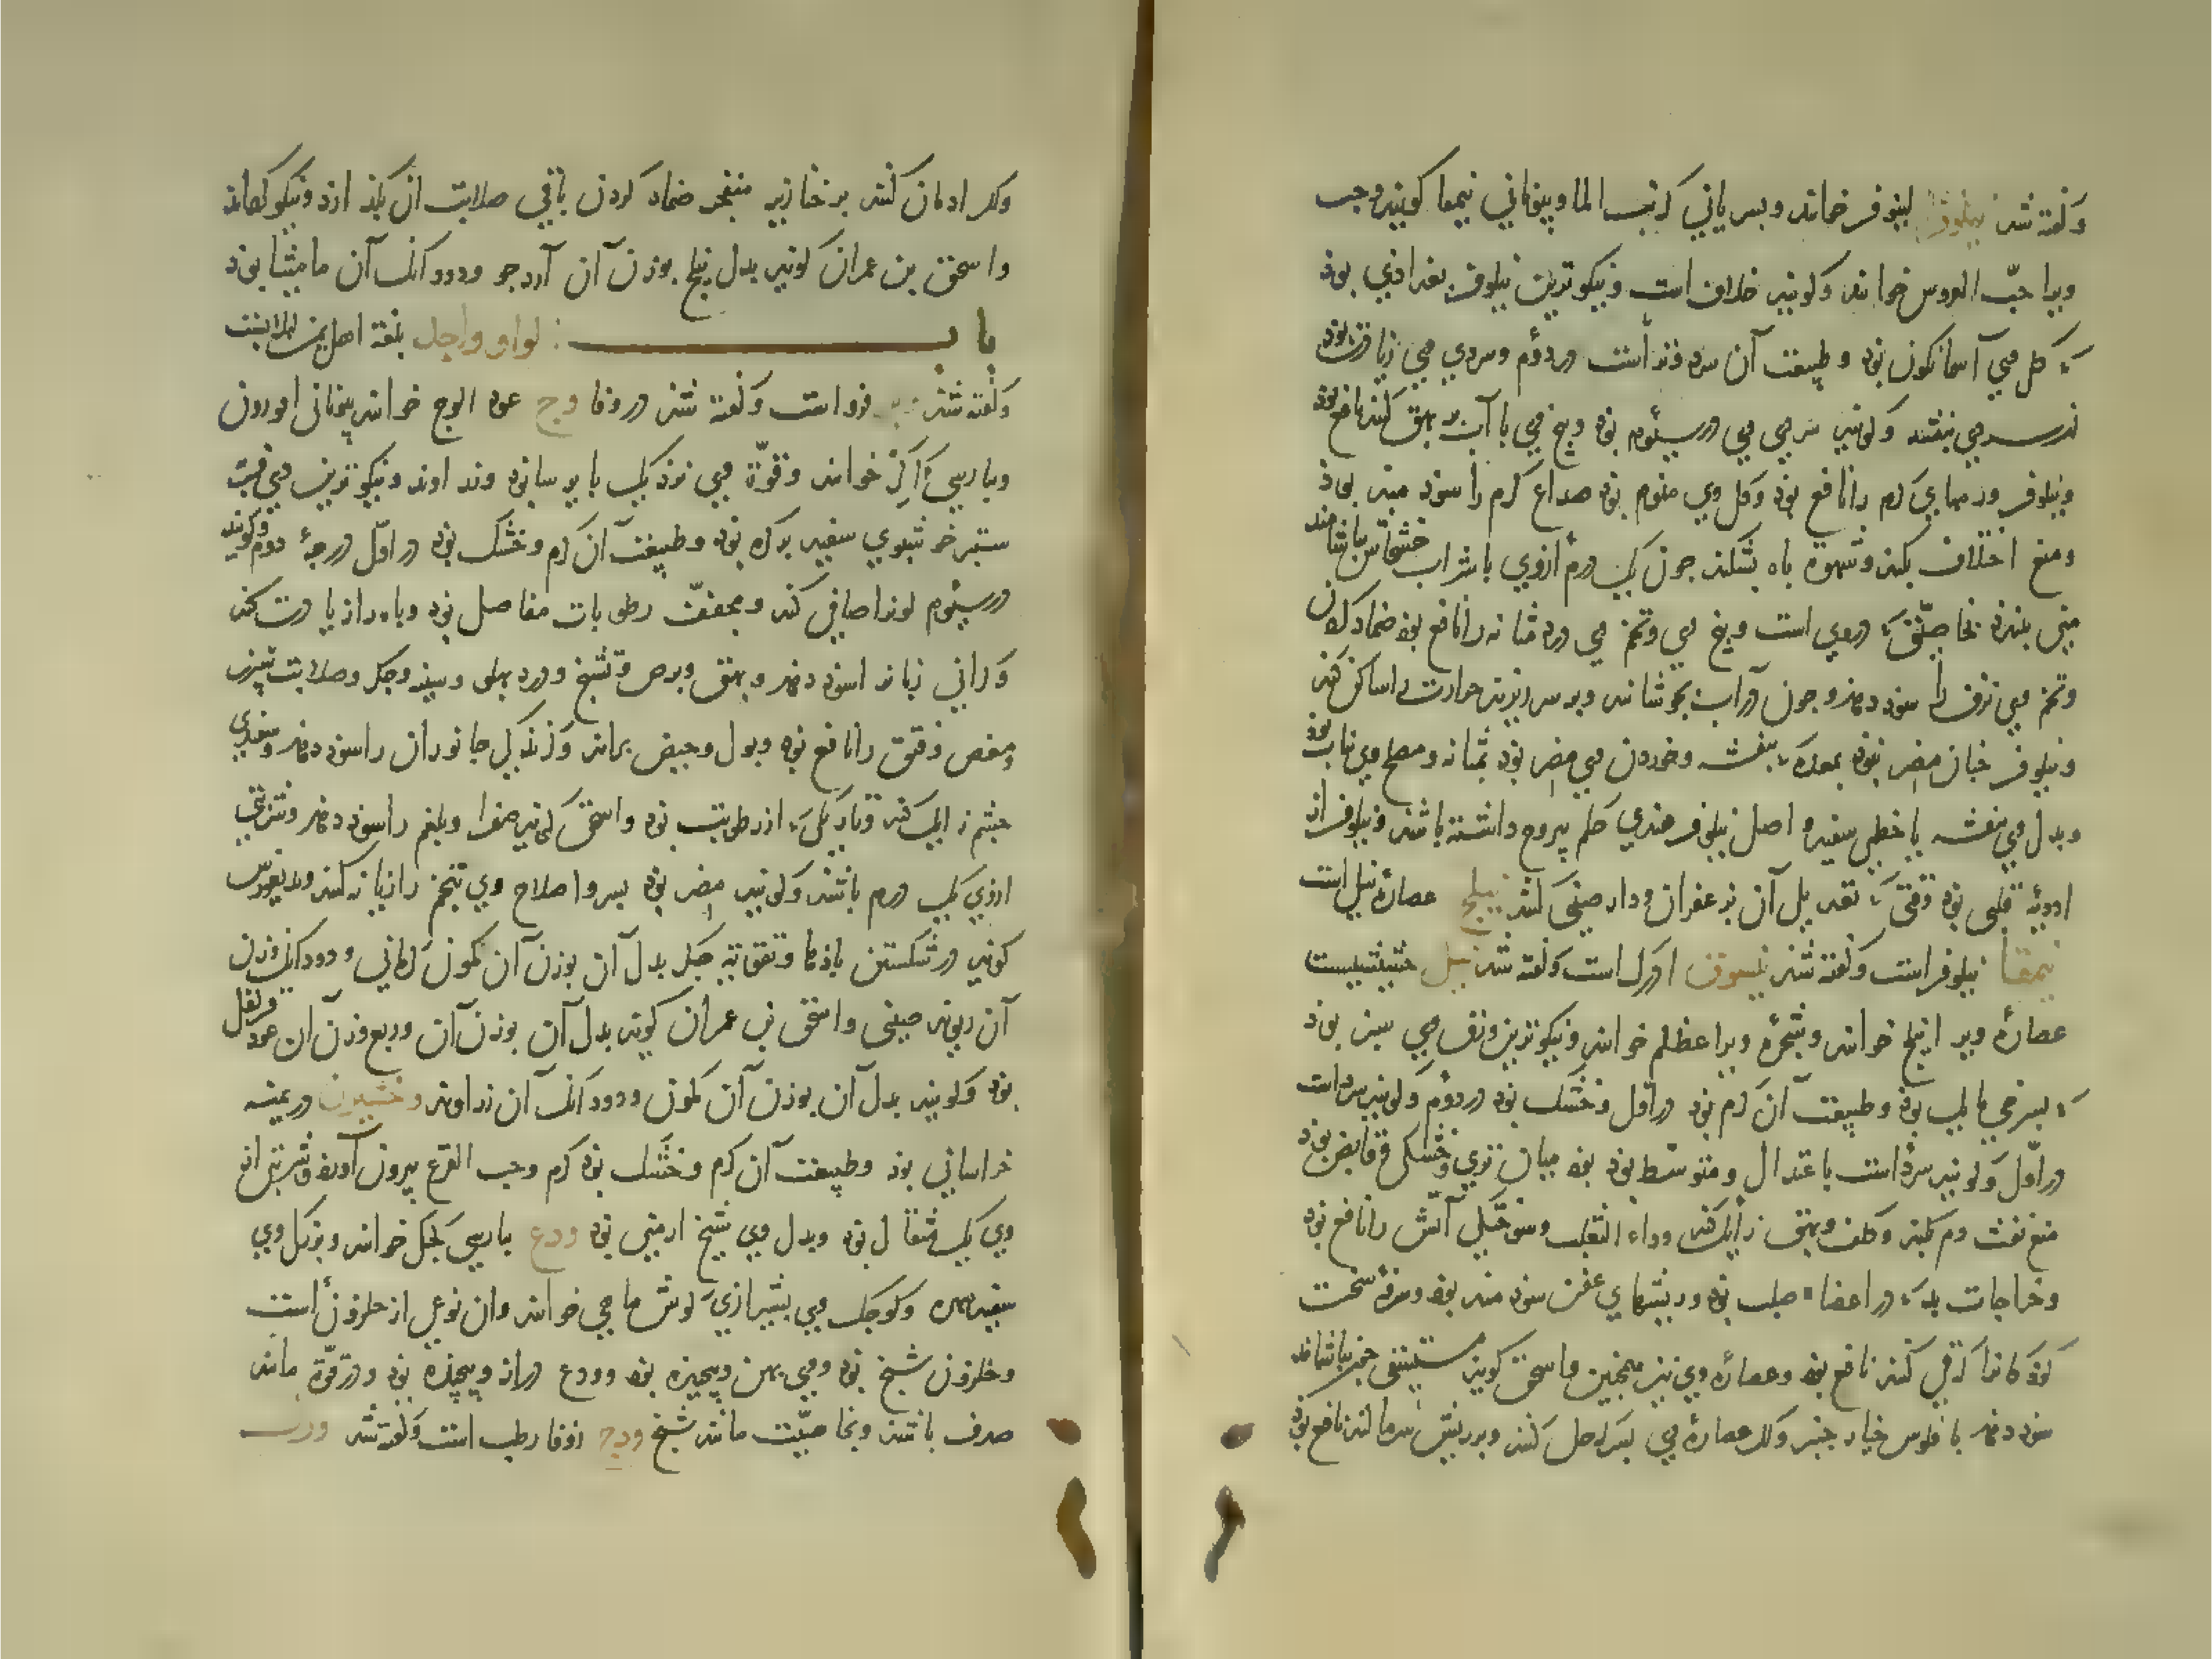 وگفته شد نیلوفر لینوفر خوانند و بسریانی کرنب الما و بیونانی نیمفا گویند و حب
ویرا حبّ العروس خوانند و گویند خلاف است و نیکوترین نیلوفر بغدادی بود
که گل وی آسمانگون بود و طبیعت آن سرد و تر است در دوم و سردی وی زیادت بود
از سردی بنفشه و گویند سردی وی در سیوم بود و بیخ وی با آب بر بهق کنند نافع بود
و نیلوفر ورمهای گرم را نافع بود و گل وی منوم بود صداع گرم را سود مند بود
و منع احتلام بکند و شهوة باه بشکند چون یک درم از وی با شراب خشخاش بیاشامند
منی ببندد بخاصیّتی که در وی است و بیخ وی و تخم وی درد مثانه را نافع بود ضماد کردن
و تخم وی نزف را سود دهد و چون در آب بجوشانند و بر سر ریزند حرارت را ساکن کند
و نیلوفر چنان مضر نبود بمعده که بنفشه و خوردن وی مضر بود بمثانه و مصلح وی نبات بود
و بدل وی بنفشه یا خطمی سفید و اصل نیلوفر هندی حکم یبروح داشته باشد و نیلوفر از
ادویهٔ قلبی بود وقتی که تعدیل آن بزعفران و دارصینی کنند نیلج عصارهٔ نیل است
نیمفا نیلوفر است و گفته شد نیسوق ادرک است و گفته شد نیل حشیشیست
عصارهٔ ویرا نیلج خوانند و شجرهٔ ویرا عظلم خوانند و نیکوترین ورق وی سبز بود
که بسرخی مایل بود و طبیعت آن گرم بود در اول و خشک بود در دوم و گویند سرد است
در اوّل و گویند سرد است باعتدال و متوسط بود میان تری و خشکی و قابض بود
منع نفث دم بکند و کلف و بهق زایل کند و داء الثعلب و سوختگی آتش را نافع بود
و خراجات بد که در اعضاء صلب بود و ریشهای عفن سود مند بود و سرفهٔ سخت
کودکانرا که قی کنند نافع بود و عصارهٔ وی نیز همچنین و اسحق گوید مستسقی چون بیاشامد
سود دهد با فلوس خیار چنبر و اگر عصارهٔ وی بسرکه حل کنند و بر ریش سر مالند نافع بود
و اگر ادمان کنند بر خنازیر منفجر ضماد کردن باقی صلابت آن بگدازد و نیکو گرداند
و اسحق بن عمران گویند بدل نیلج بوزن آن آرد جو و دو دانگ آن مامیثا بود
باب الواو واجل بلغة اهل یمن لبلابست
وگفته شد فرو است و گفته شد در وفا وج عود الوج خوانند بیونانی اقورون
و بپارسی اکر خوانند و قوّة وی نزدیک بایرسا بود و نداوند و نیکوترین وی
ستبر خوشبوی سفید پرکره بود و طبیعت آن گرم و خشک بود در اوّل درجهٔ دوم و گویند
در سیوم لونرا صافی کند و مجفف رطوبات مفاصل بود و باه را زیادت کند
و گرانی زبانرا سود دهد و بهق و برص و تشنج و درد پهلو و سینه و جگر و صلابت سپرز
و مغص و فتق را نافع بود و بول و حیض براند و گزندگی جانوران را سود دهد و سفیدی
چشم زایل کند و تاریکی که از رطوبت بود و اسحق گوید صفرا و بلغم را سود دهد و شربتی
از وی یک درم باشد و گویند مضر بود بسر و اصلاح وی بتخم رازیانه کنند و دیسقوریدس
گوید در شکستن بادها و تقویت جگر بدل آن بوزن آن کمون کرمانی و دو دانگ وزن
آن ریوند صینی و اسحق بن عمران گوید بدل آن بوزن آن و ربع وزن آن عود قرنفل
بود و گویند بدل آن بوزن آن کمون و دو دانگ آن زراوند وخشیزق درمنه
خراسانی بود و طبیعت آن گرم و خشک بود کرم و حب القرع بیرون آورد و شربتی از
وی یک مثقال بود و بدل وی شیح ارمنی بود ودع بپارسی کجک خوانند و بزرگ وی
سفید مهره و کوچک وی بشیرازی گوش ماهی خوانند و آن نوعی از حلزون است
و حلزون شنج بود و وی پهن و پیچیده بود و ودع دراز و پیچیده بود و در قوّة مانند
صدف باشد و بخاصیّت مانند شنج ودح زوفا رطب است و گفته شد ورت